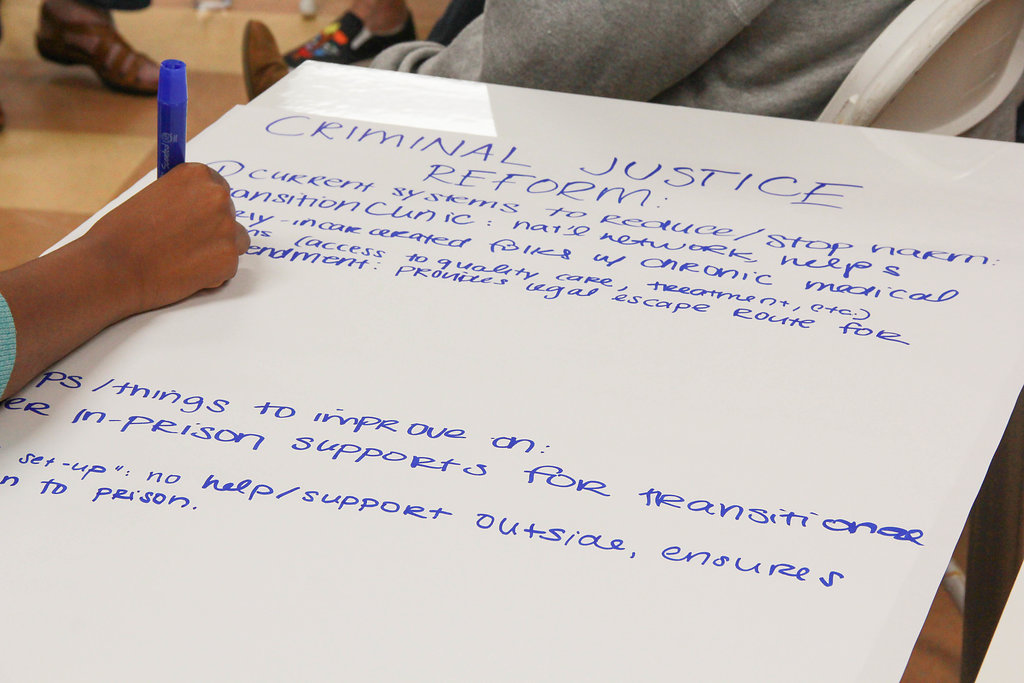 CRIMINAL JUSTICE
REFORM:
① current systems to reduce/stop harm:
ansition Clinic: nat'l network, helps
rly-incarcerated folks w/ chronic medical
ns (access to quality care, treatment, etc.)
endment: provides legal escape route for
ps/things to improve on:
er in-prison supports for transitional
set-up": no help/support outside, ensures
n to prison.